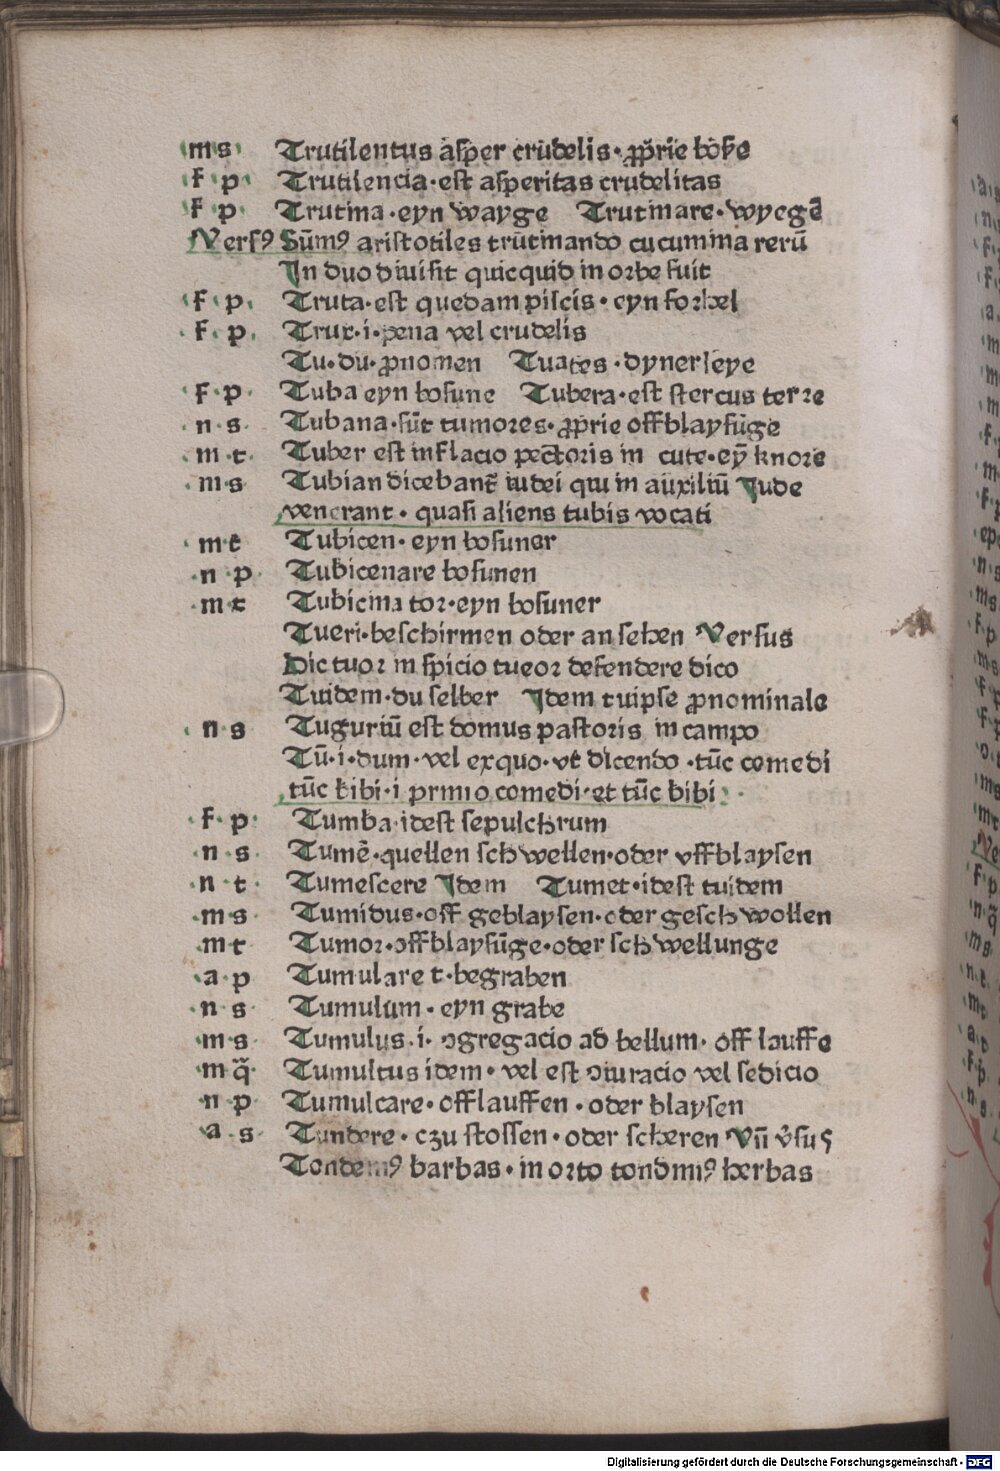 m s Trutilentus asper crudelis · ꝓprie boße
f p Trutilencia · est asperitas crudelitas
f p Trutina · eyn wayge Trutinare · wyegē
Versꝰ Sūmꝰ aristotiles trutinando cucumina rerū
In duo diuisit quicquid in orbe fuit
f p · Truta · est quedam piscis · eyn forhel
· f · p · Trux · i · pena vel crudelis
Tu · du · ꝓnomen Tuates · dynerleye
· f · p Tuba eyn bosune Tubera · est stercus terre
· n · s · Tubana · sūt tumores · ꝓprie offblaysūge
· m · t · Tuber est inflacio pectoris in cute · eȳ knore
· m s Tubian dicebant̄ iudei qui in auxiliū Jude
venerant · quasi aliens tubis vocati
· m t Tubicen · eyn bosuner
· n p · Tubicenare bosunen
· m t Tubicina tor · eyn bosuner
Tueri · beschirmen oder an sehen Versus
Dic tuor inspicio tueor defendere dico
Tuidem · du selber Idem tuipse ꝓnominale
· n s Tuguriū est domus pastoris in campo
Tū · i · dum · vel exquo · vt dicendo · tūc comedi
tūc bibi · i primo comedi · et tūc bibi ·
· f · p · Tumba idest sepulchrum
· n s · Tumē · quellen schwellen · oder vffblaysen
· n t · Tumescere Idem Tumet · idest tuidem
· m s · Tumidus · off geblaysen · oder geschwollen
· m t Tumor · offblaysūge · oder schwellunge
· a p Tumulare t · begraben
· n s · Tumulum · eyn grabe
· m s Tumulus · i · ꝯgregacio ad bellum · off lauffe
· m q̄ · Tumultus idem · vel est ꝯiuracio vel sedicio
· n p Tumultare · offlauffen · oder blaysen
· a · s · Tundere · czu stossen · oder scheren Vn̄ v̄sus
Tondemꝰ barbas · in orto tondimꝰ herbas
Digitalisierung gefördert durch die Deutsche Forschungsgemeinschaft - DFG